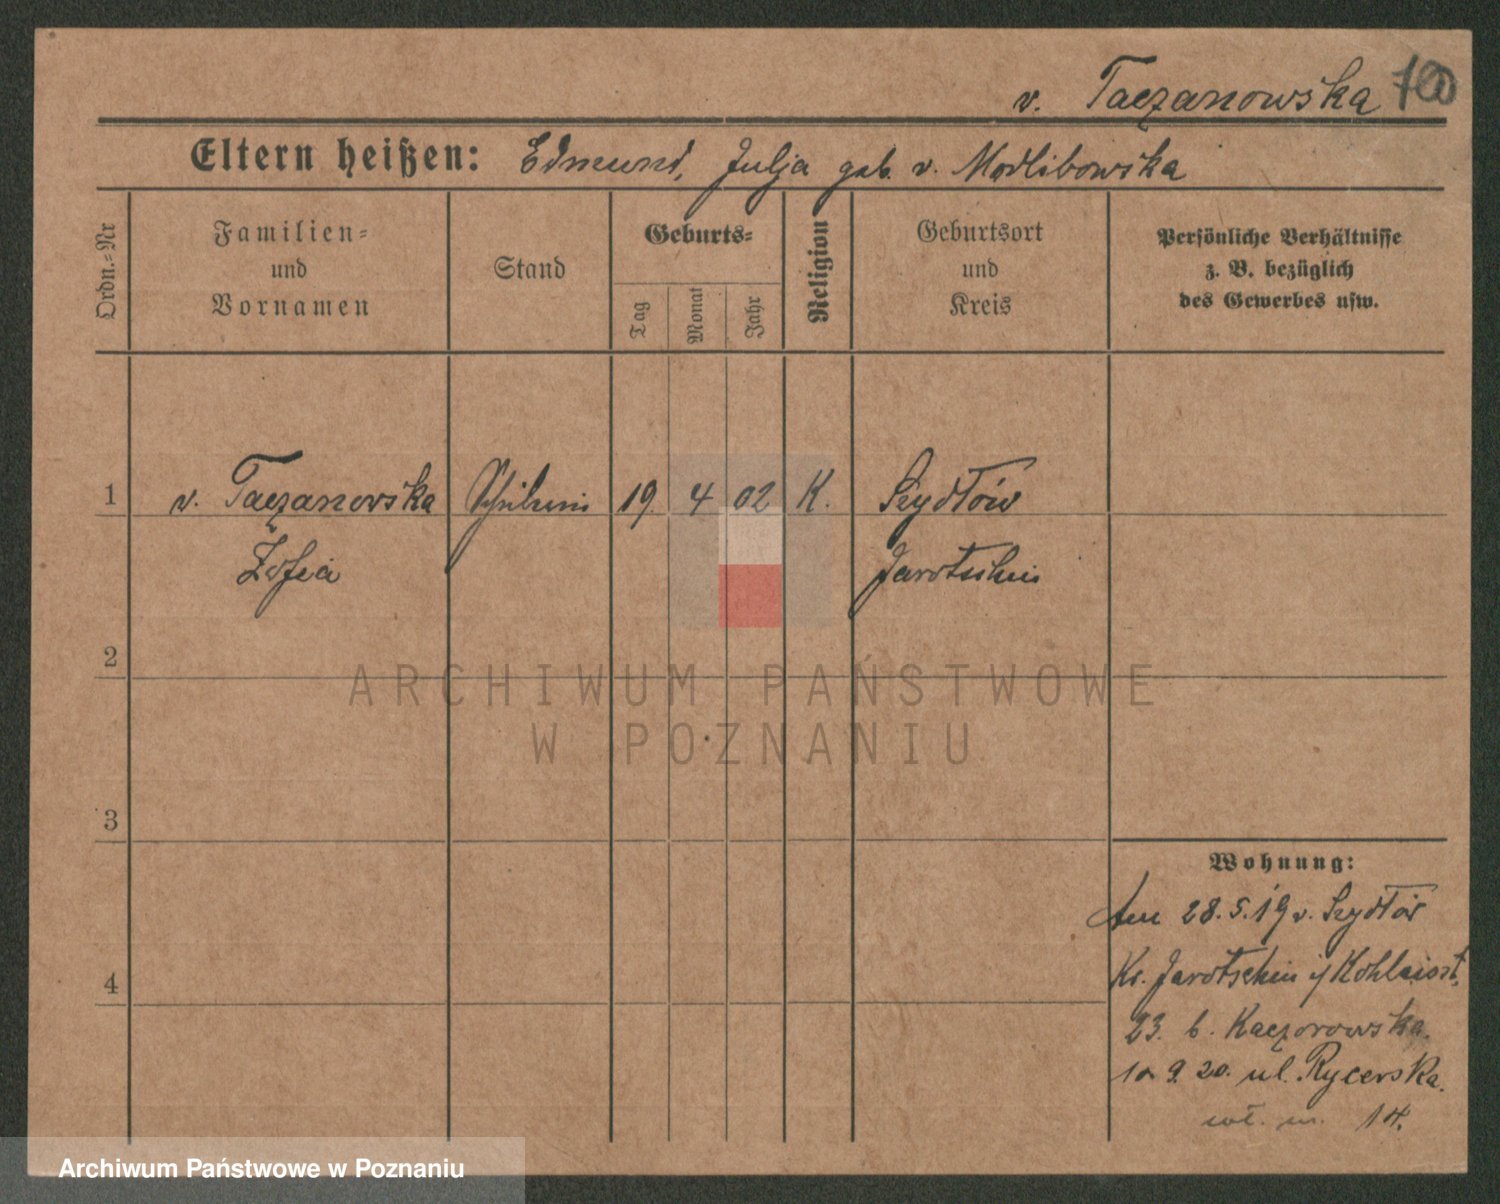 v. Taczanowska 100
Eltern heißen: Edmund, Julja geb. v. Modlibowska
Ordn.=Nr
Familien=
und
Vornamen
Stand
Geburts=
Tag
Monat
Jahr
Religion
Geburtsort
und
Kreis
Persönliche Verhältnisse
z. B. bezüglich
des Gewerbes usw.
1 v. Taczanowska Schülerin 19. 4 02 K. Szydłów
Zofia Jarotschin
2
ARCHIWUM PAŃSTWOWE
W POZNANIU
3
Wohnung:
Am 28.5.19 v. Szydłów
Kr. Jarotschin
4
23. b. Kaczorowska.
9. 20. ul. Rycerska.
14.
Archiwum Państwowe w Poznaniu